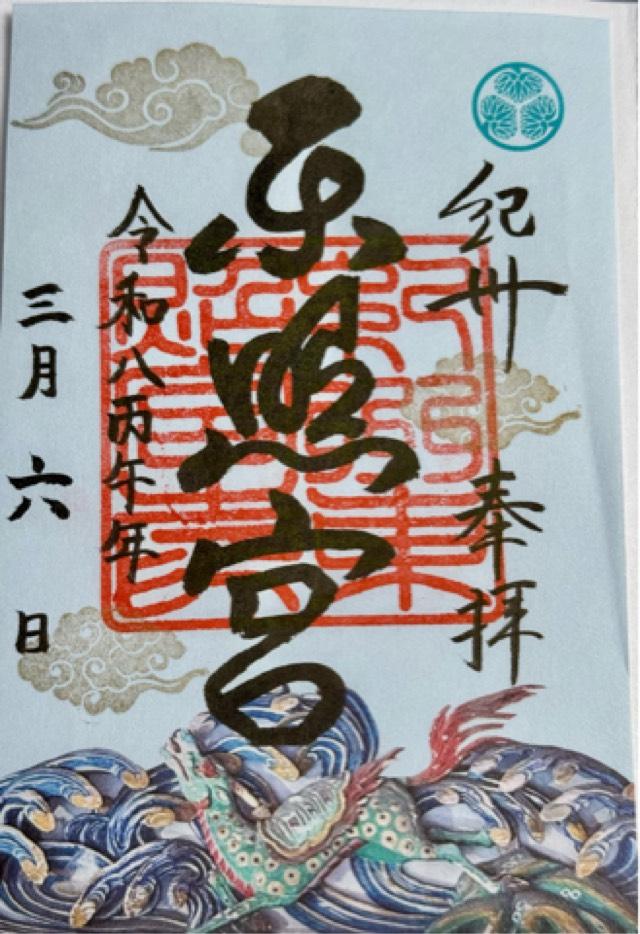 紀州　奉拝
東照宮
令和八丙午年
三月六日